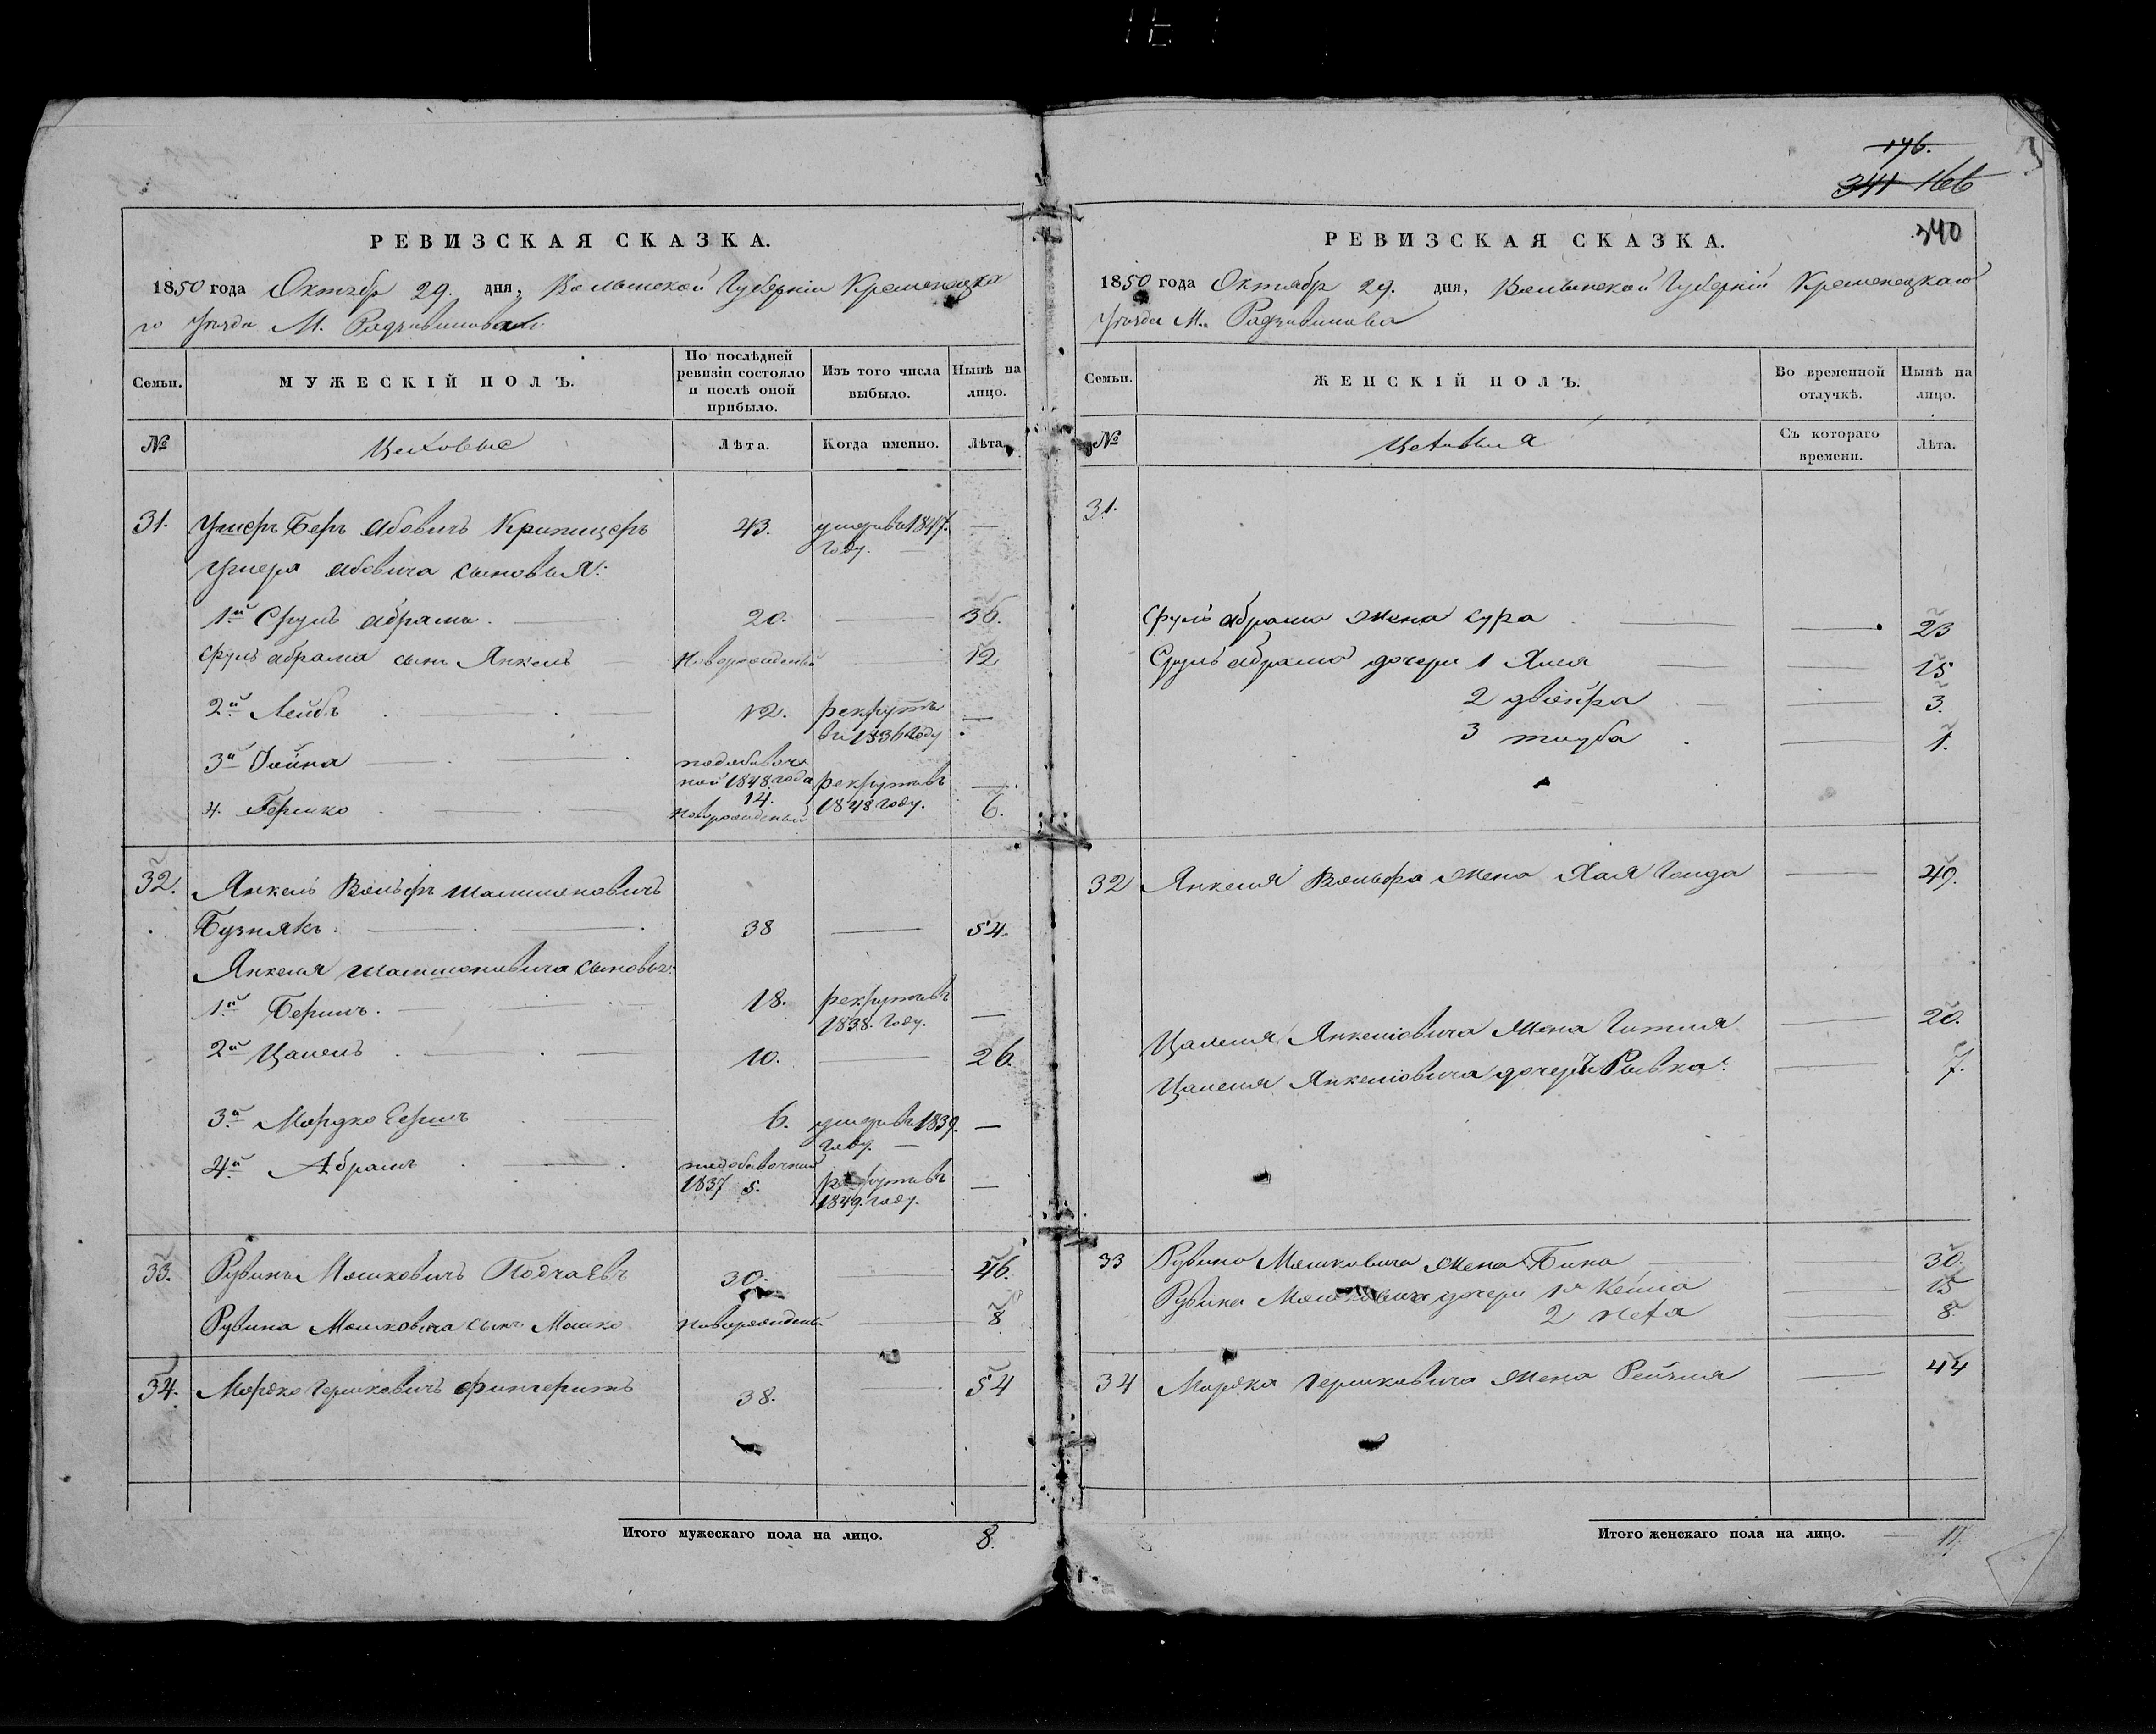 РЕВИЗСКАЯ СКАЗКА.
1850 года Октябр 29. дня, Волынской Губерніи Кременецка
го Уѣзда М. Радзивилова
Семьи.
МУЖЕСКІЙ ПОЛЪ.
По послѣдней ревизіи состояло и послѣ оной прибыло.
Изъ того числа выбыло.
Нынѣ на лицо.
№
Цеховые
Лѣта.
Когда именно.
Лѣта.
31. Ушеръ Беръ Абовичъ 43. умеръ в 1847. —
году.
Ушера Абовича сыновья:
1й Сруль Абрамъ. 20. — 36.
Сруль Абрама сынъ Янкель новорожденный — 12
2й Лейбъ 12. рекрутъ —
въ 1836 году
3й Іойна
ной 1848. года рекрутъ въ —
14. 1848 году.
4. Гершко новорожденный 6.
32. Янкель Вольфъ Шамшоновичъ
Бузнякъ. 38 — 54.
Янкеля Шамшоновича сыновья:
1й Беришъ. 18. рекрутъ въ —
1838. году.
2й Цалель 10. — 26.
3й Мордко 6. умеръ въ 1839. —
году. —
4й Абрамъ
1837 5. рекрутъ въ —
1849. году.
33. Рувинъ Мошковичъ Почаевъ 30. — 46.
Рувина Мошковича сынъ Мошко новорожденный — 8
34. Мордко Гершковичъ 38. 54
Итого мужескаго пола на лицо. 8.
176.
341 166
340
РЕВИЗСКАЯ СКАЗКА.
1850 года Октябр 29. дня, Волынской Губерніи Кременецкаго
Уѣзда М. Радзивилова
Семьи.
ЖЕНСКІЙ ПОЛЪ.
Во временной отлучкѣ.
Нынѣ на лицо.
№
Цеховыя
Съ котораго времени.
Лѣта.
31.
Сруль Абрама жена Сура — 23
Сруль Абрама дочери 1 Хая — 15
2 Двейра — 3.
3 Тауба — 1.
32 Янкеля Вольфа жена Хая — 49.
Цалеля Янкелiовича жена Гитля — 20.
Цалеля Янкелiовича дочерь Рывка: — 7.
33 Рувина Мошковича жена Бина — 30.
Рувина Мошковича дочери 1я — 15
2 — 8.
34 Мордка Гершковича жена Рейзля — 44
Итого женскаго пола на лицо. — 11.